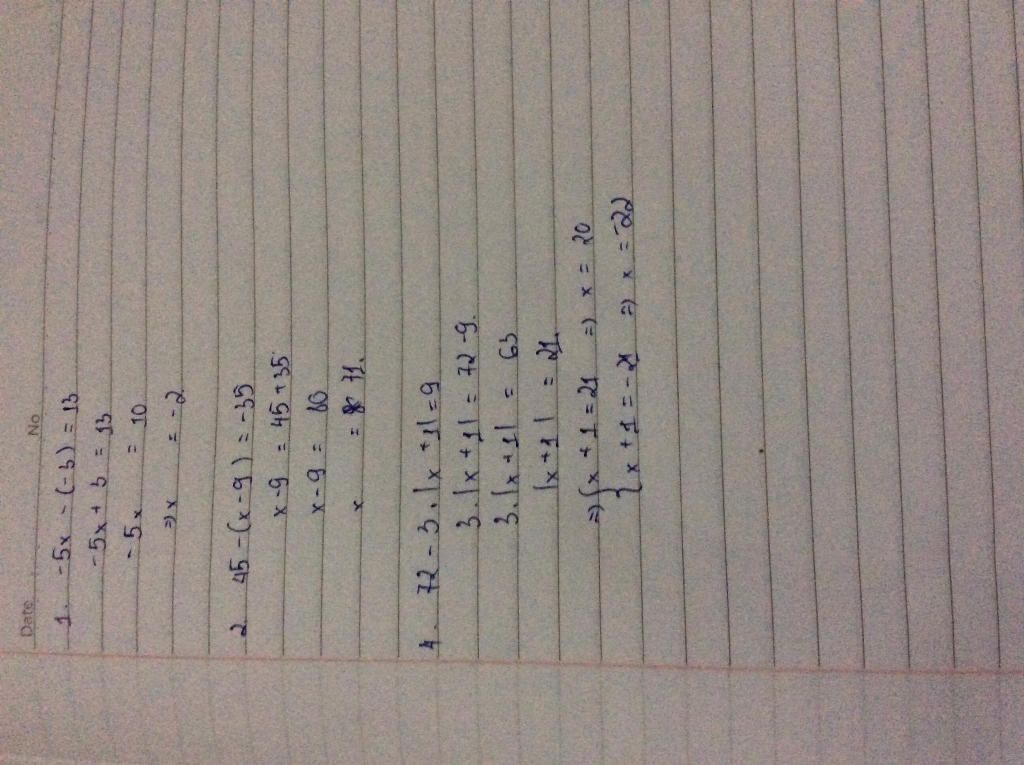 Date No
1. -5x - (-3) = 13
-5x + 3 = 13
-5x = 10
=> x = -2
2. 45 - (x - 9) = -35
x - 9 = 45 + 35
x - 9 = 80
x = 71.
4. 72 - 3. |x + 1| = 9
3. |x + 1| = 72 - 9.
3. |x + 1| = 63
|x + 1| = 21.
=> { x + 1 = 21 => x = 20
{ x + 1 = -21 => x = -22